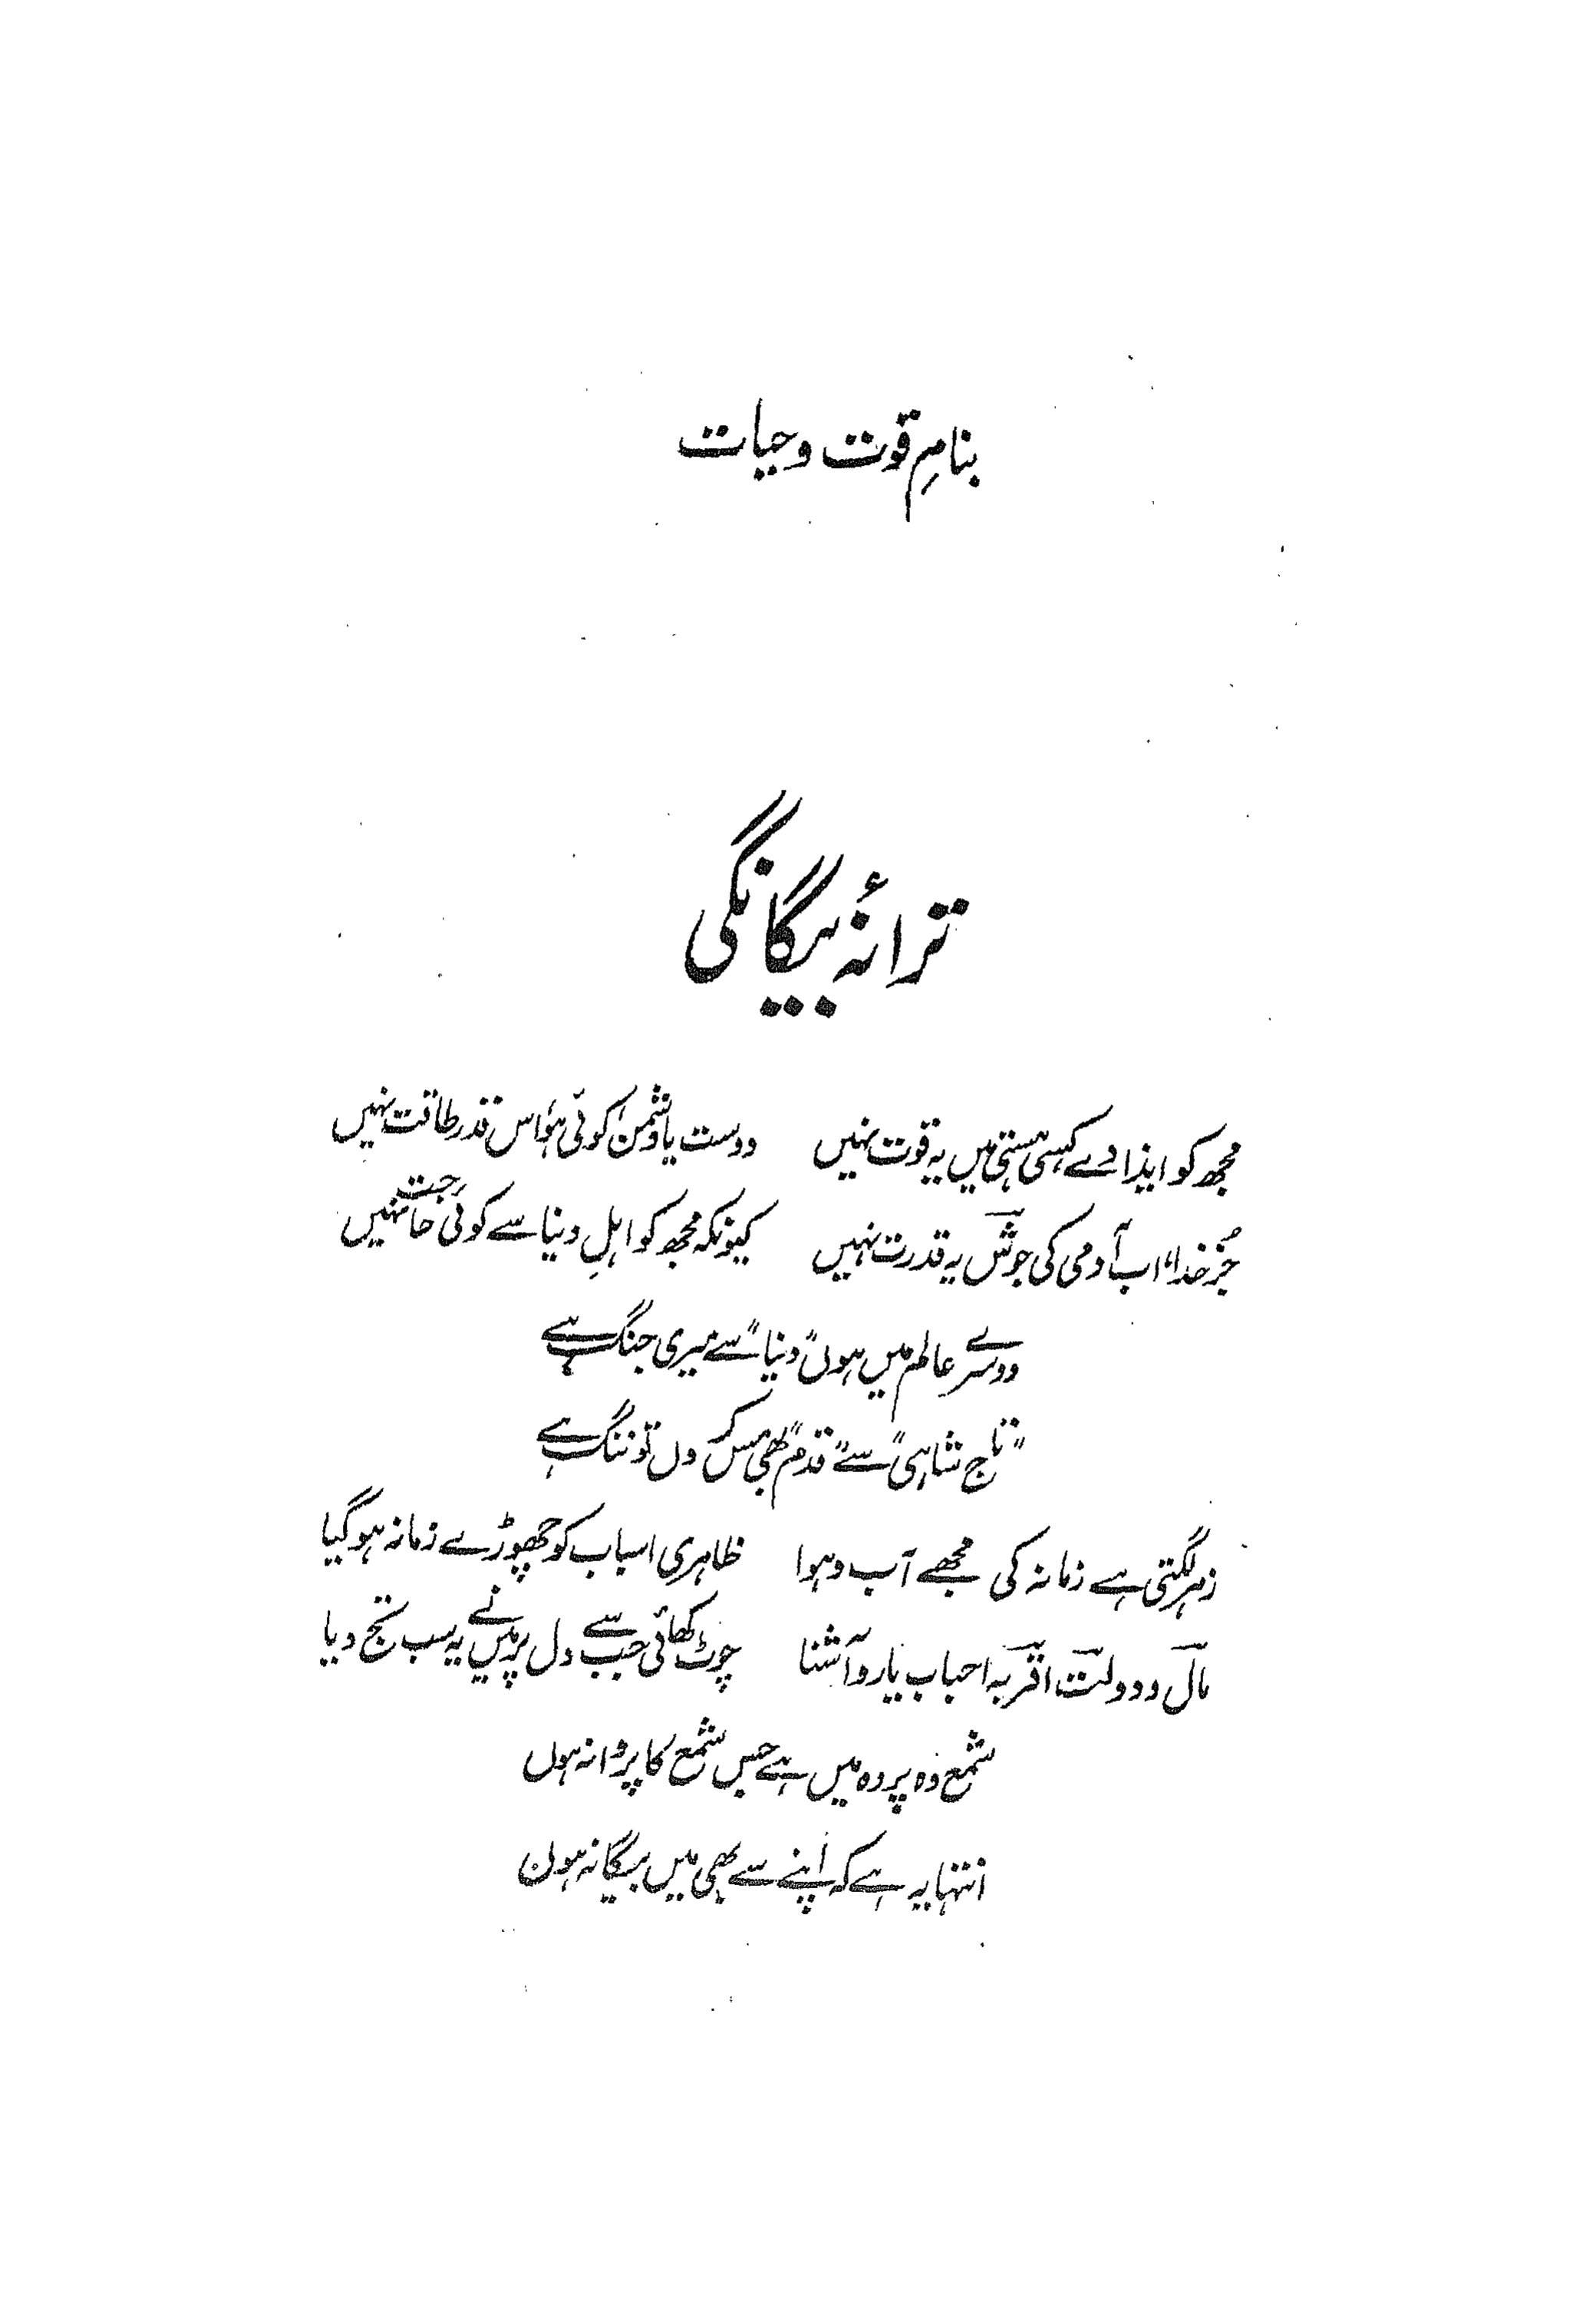 بنامِ قوت و حیات
ترانۂ بیگانگی
مجھ کو ایذا دے کسی ہستی میں یہ قوت نہیں دوست یا دشمن کوئی ہو، اس قدر طاقت نہیں
جُز خدا، اب آدمی کی جوشؔ یہ قدرت نہیں کیونکہ مجھ کو اہلِ دنیا سے کوئی حاجت نہیں
دوسرے عالم میں ہوں "دنیا" سے میری جنگ ہے
"تاج شاہی" سے "قدم" بھی مس کروں تو ننگ ہے
زہر لگتی ہے زمانہ کی مجھے آب و ہوا ظاہری اسباب کو چھوڑے زمانہ ہو گیا
مال و دولت اقربہ احباب یار و آشنا چوٹ کھائی جب سے دل پر میں نے یہ سب تج دیا
شمع وہ پردہ میں ہے جس شمع کا پروانہ ہوں
انتہا یہ ہے کہ اپنے سے بھی میں بیگانہ ہوں